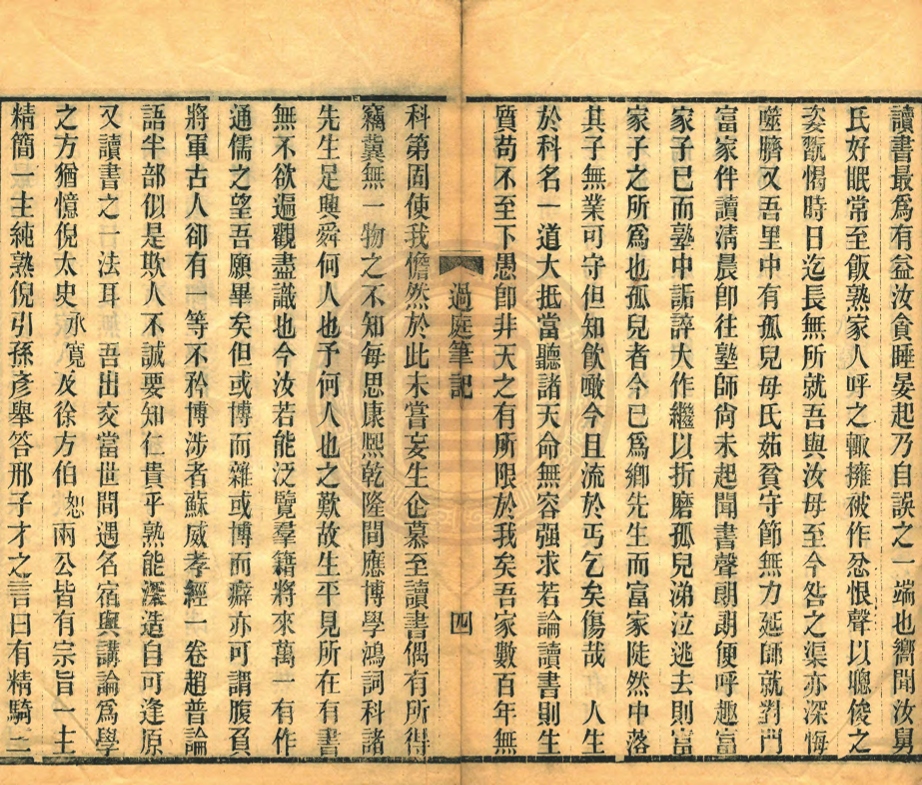 讀書最爲有益汝貪睡晏起乃自誤之一端也嚮聞汝舅
氏好眠常至飯熟家人呼之輒擁被作忿恨聲以聰俊之
姿翫愒時日迄長無所就吾與汝母至今咎之渠亦深悔
噬臍又吾里中有孤兒母氏茹貧守節無力延師就對門
富家伴讀淸晨卽往塾師尙未起聞書聲朗朗便呼趣富
家子已而塾中詬誶大作繼以折磨孤兒涕泣逃去則富
家子之所爲也孤兒者今已爲鄕先生而富家陡然中落
其子無業可守但知飮噉今且流於丐乞矣傷哉　人生
於科名一道大抵當聽諸天命無容强求若論讀書則生
質苟不至下愚卽非天之有所限於我矣吾家數百年無
過庭筆記　四
科第固使我儋然於此未嘗妄生企慕至讀書偶有所得
竊冀無一物之不知每思康熙乾隆間應博學鴻詞科諸
先生足興舜何人也予何人也之歎故生平見所在有書
無不欲遍觀盡識也今汝若能泛覽羣籍將來萬一有作
通儒之望吾願畢矣但或博而雜或博而癖亦可謂腹負
將軍古人卻有一等不矜博涉者蘇威孝經一卷趙普論
語半部似是欺人不誠要知仁貴乎熟能深造自可逢原
又讀書之一法耳　吾出交當世間遇名宿與講論爲學
之方猶憶倪太史承寬及徐方伯恕兩公皆有宗旨一主
精簡一主純熟倪引孫彥舉答邢子才之言曰有精騎三